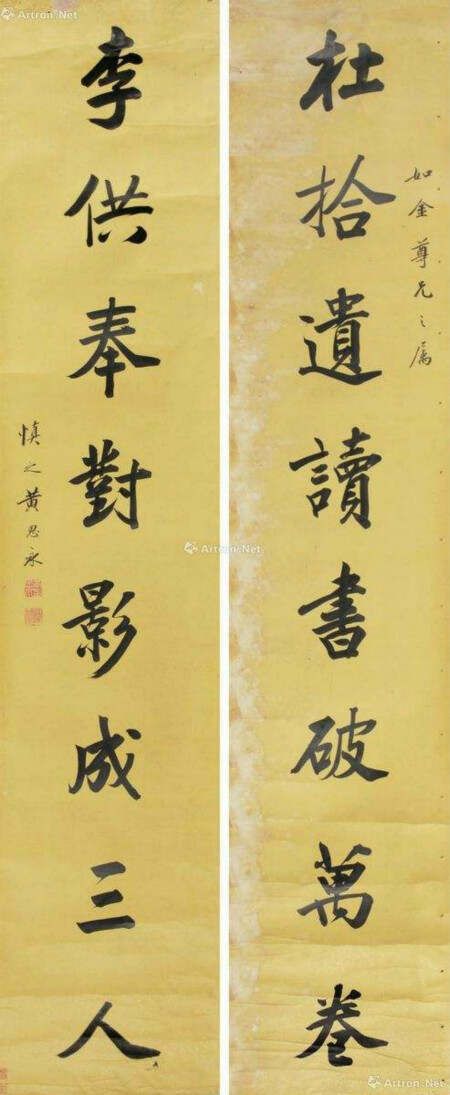 杜拾遺讀書破萬卷
如金尊兄之属
李供奉對影成三人
慎之黄思永
Artron.Net
Artron.Net
Artron.Net